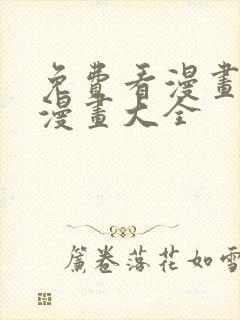 免費看漫畫
漫畫大全
簾卷落花如雪